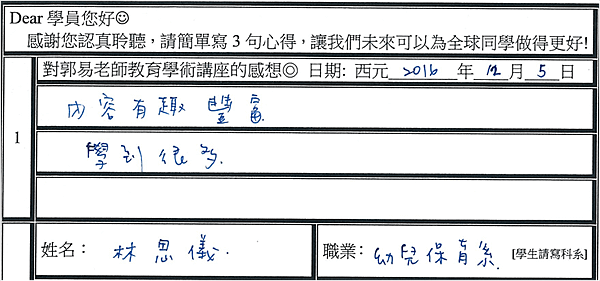 Dear 學員您好☺
感謝您認真聆聽，請簡單寫 3 句心得，讓我們未來可以為全球同學做得更好!
對郭易老師教育學術講座的感想◎ 日期: 西元 2016 年 12 月 5 日
1
內容有趣豐富
學到很多.
姓名： 林思儀. 職業： 幼兒保育系. [學生請寫科系]